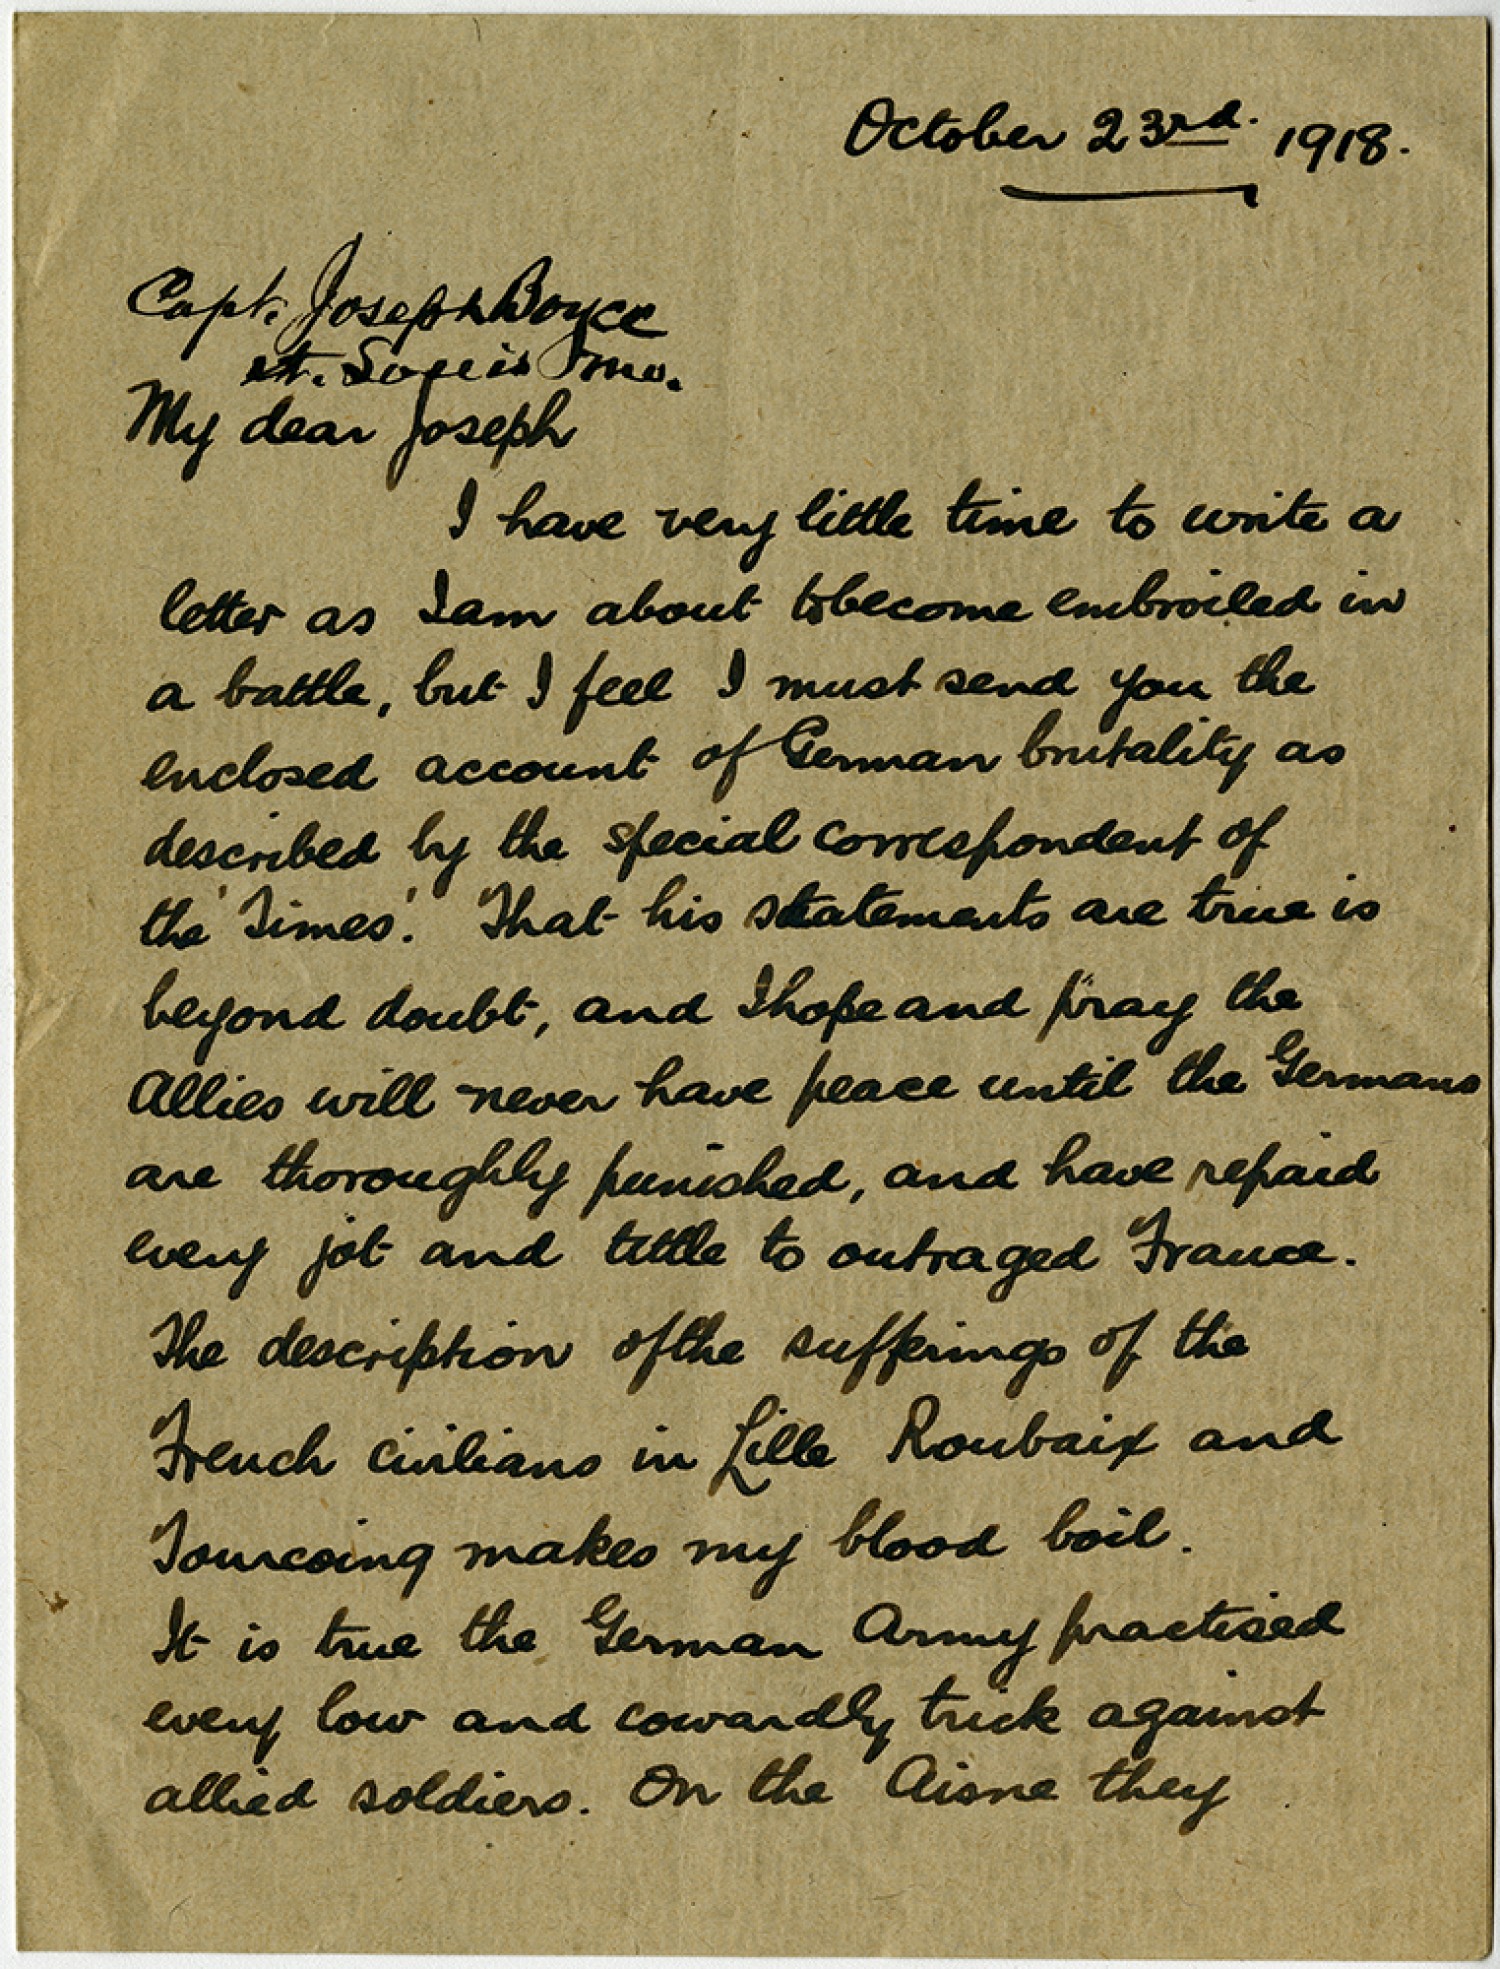 October 23rd. 1918.
Capt. Joseph Boyce
St. Louis Mo.
My dear Joseph
I have very little time to write a
letter as I am about to become embroiled in
a battle, but I feel I must send you the
enclosed account of German brutality as
described by the special correspondent of
the 'Times'. That his statements are true is
beyond doubt, and I hope and pray the
Allies will never have peace until the Germans
are thoroughly punished, and have repaid
every jot and tittle to outraged France.
The description of the sufferings of the
French civilians in Lille Roubaix and
Tourcoing makes my blood boil.
It is true the German Army practised
every low and cowardly trick against
allied soldiers. On the Aisne they